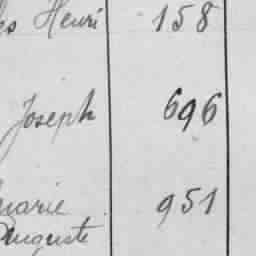 Henri 158
Joseph 696
marie 951
Auguste